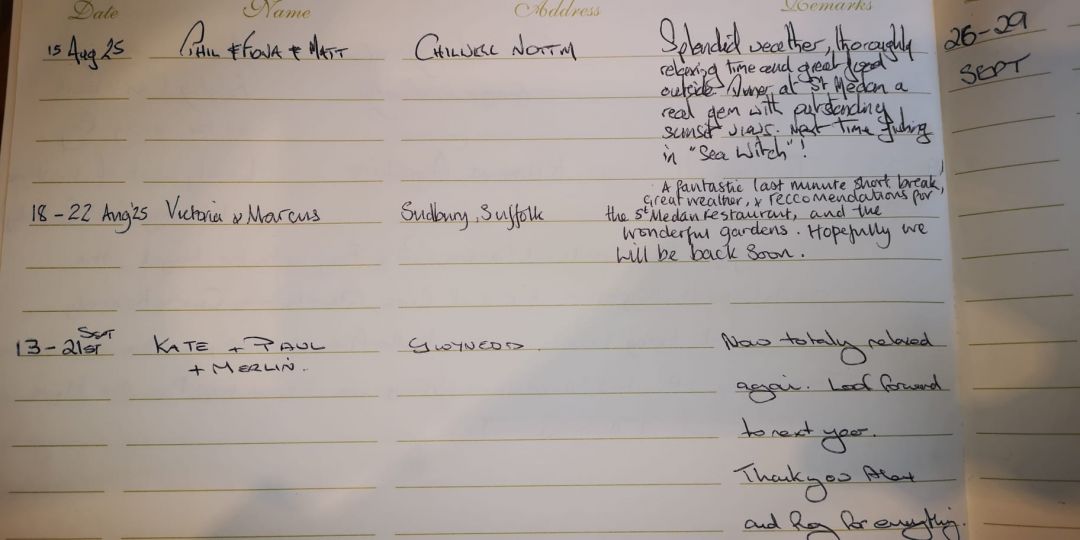 Date Name Address Remarks
15 Aug 25 PHIL & FIONA & MATT CHILWELL NOTTM Splendid weather, thoroughly
relaxing time and great food
outside. Dinner at St Medan a
real gem with outstanding
sunset views. Next time fishing
in "Sea Witch"!
18-22 Aug'25 Victoria & Marcus Sudbury, Suffolk A fantastic last minute short break,
Great weather, & reccomendations for
the St Medan restaurant, and the
wonderful gardens. Hopefully we
will be back soon.
13-21ST SEPT KATE + PAUL GWYNEDD Now totaly relaxed
+ MERLIN.
again. Look forward
to next year.
Thankyou
and Roy for everything.
26-29
SEPT